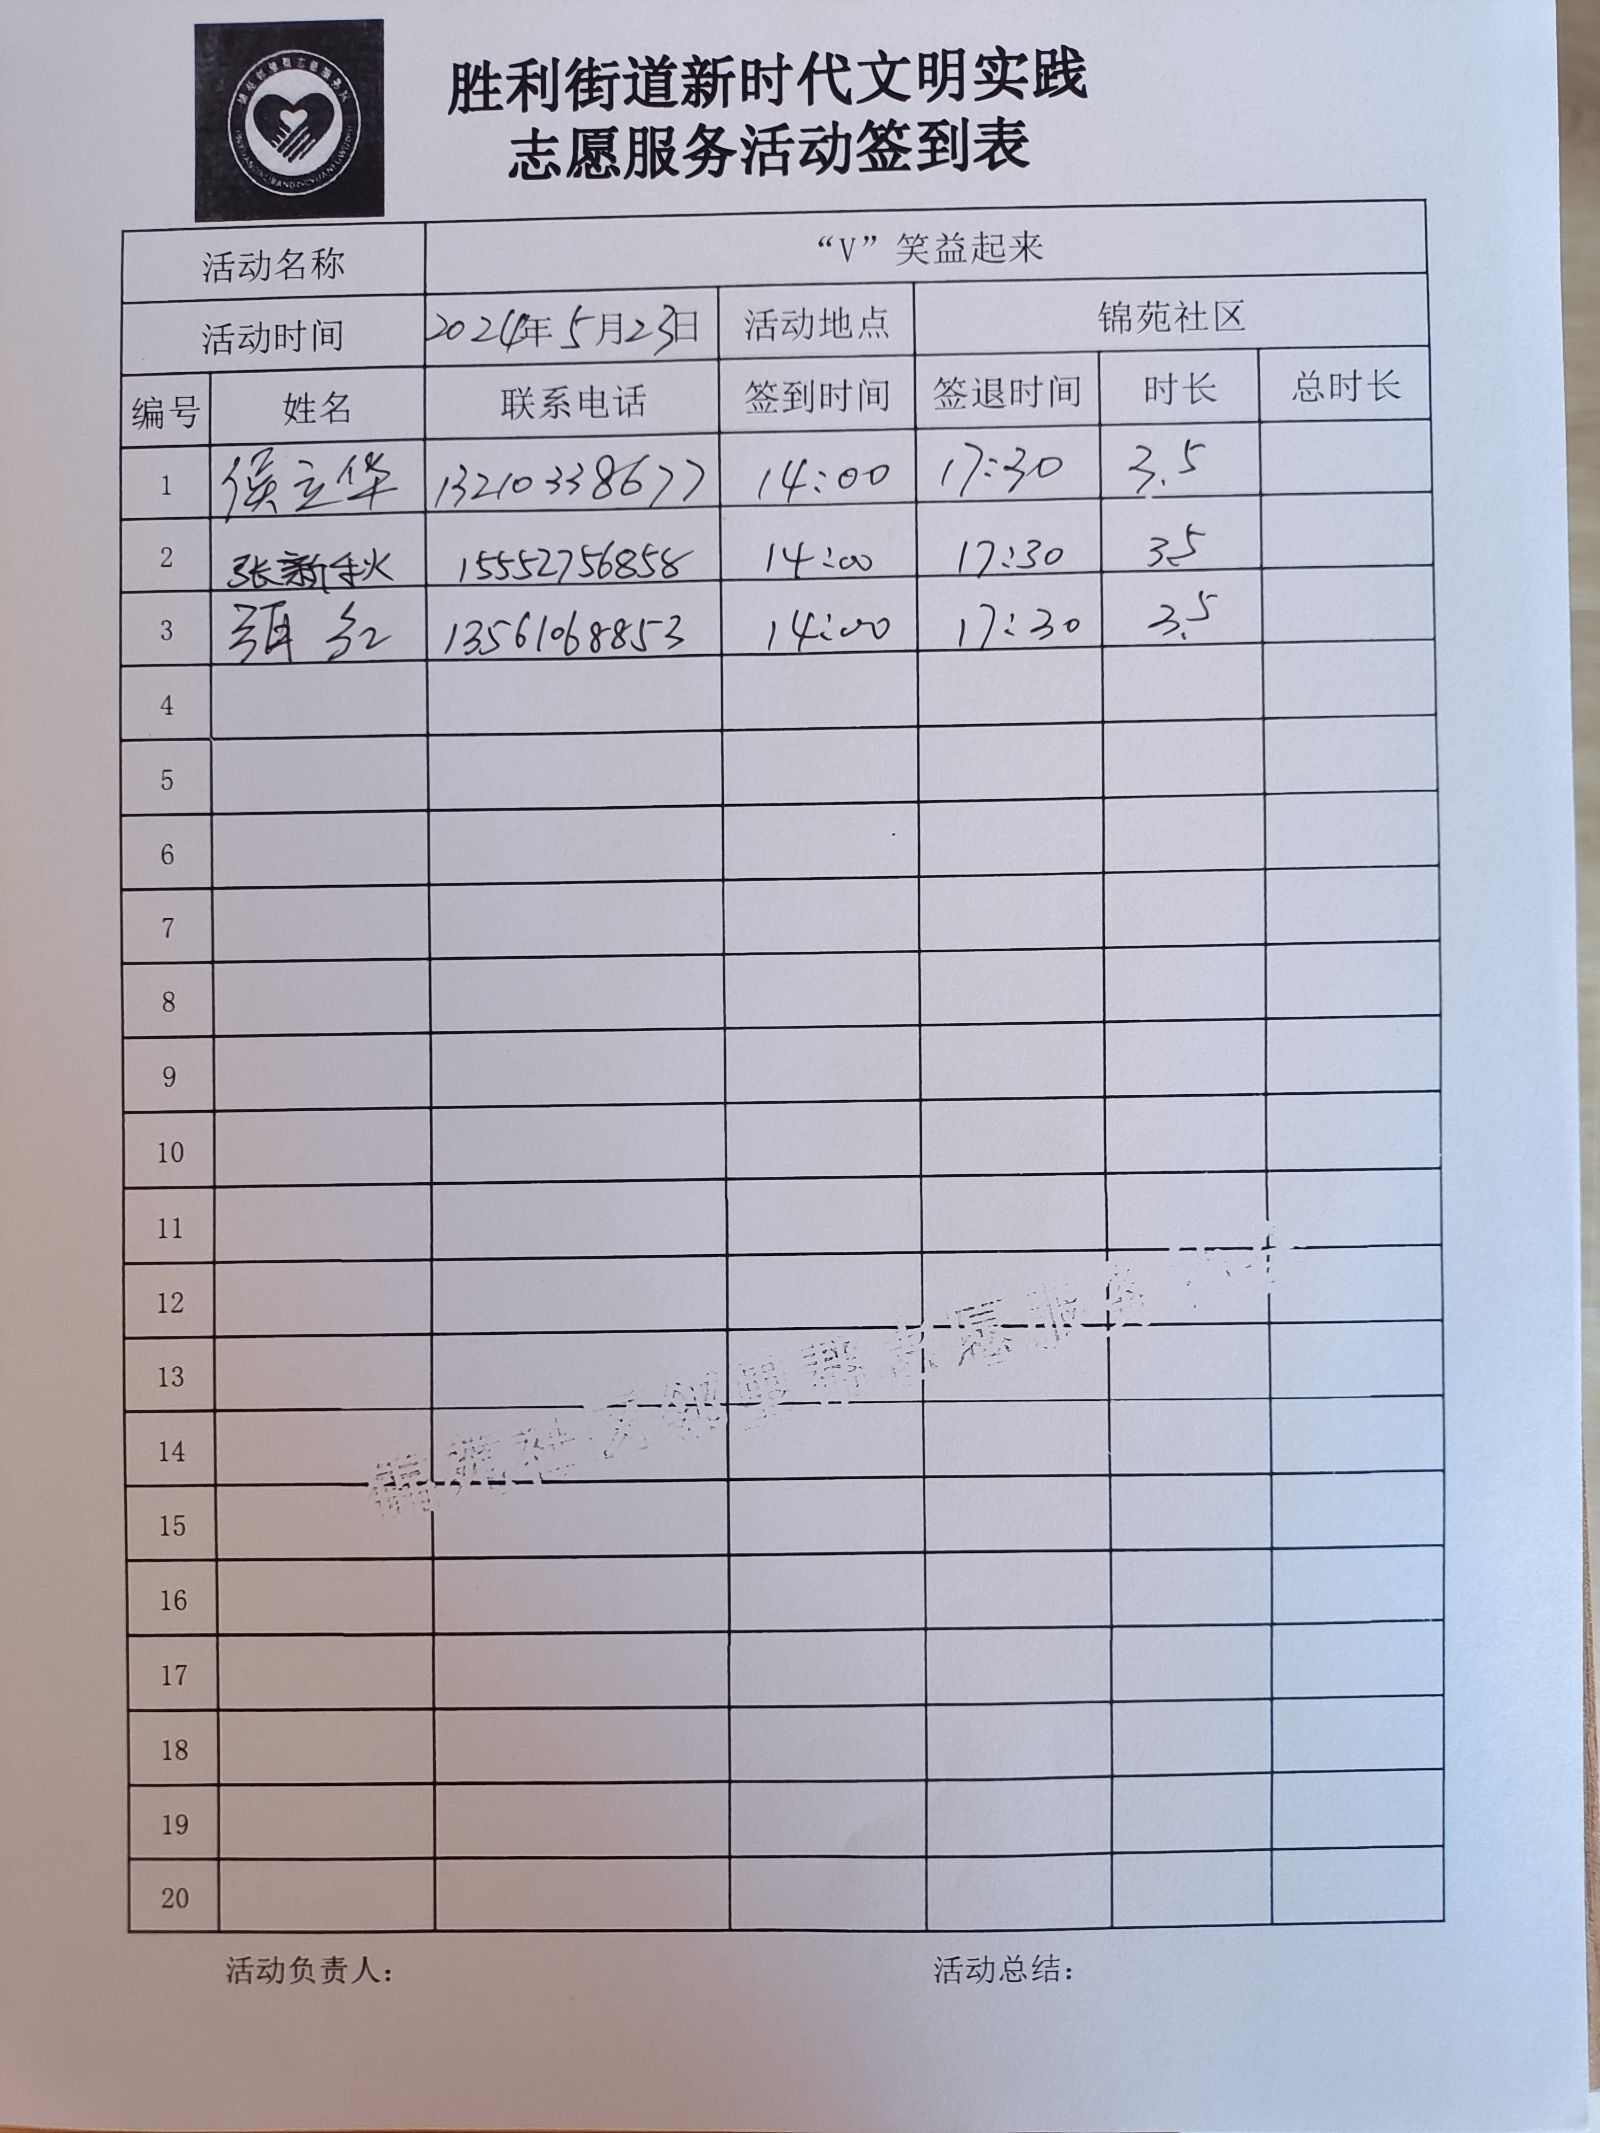 胜利街道新时代文明实践
志愿服务活动签到表
活动名称 “V”笑益起来
活动时间 2024年5月23日 活动地点 锦苑社区
编号 姓名 联系电话 签到时间 签退时间 时长 总时长
1 侯立华 13210338677 14:00 17:30 3.5
2 张新秋 15552756858 14:00 17:30 3.5
3 红 13561068853 14:00 17:30 3.5
4
5
6
7
8
9
10
11
12
13
14
15
16
17
18
19
20
锦苑社区邻里帮志愿服务
活动负责人： 活动总结：